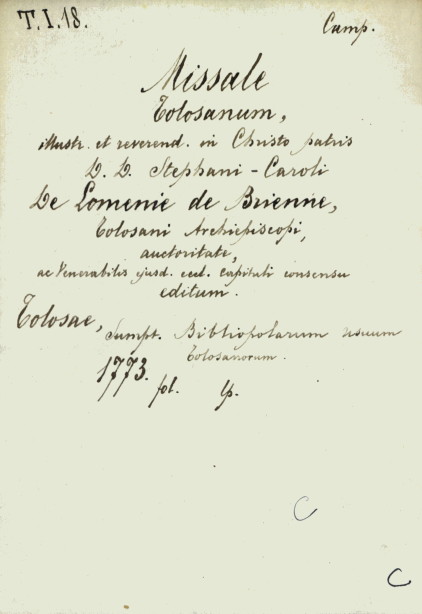 T. I. 18.
Camp.
Missale
Tolosanum,
illustr. et reverend. in Christo patris
D. D. Stephani - Caroli
De Lomenie de Brienne,
Tolosani Archiepiscopi,
auctoritate,
ac Venerabilis ejusd. eccl. Capituli consensu
editum.
Tolosae, Sumpt. Bibliopolarum usuum
Tolosanorum.
1773.
fol.
C
C